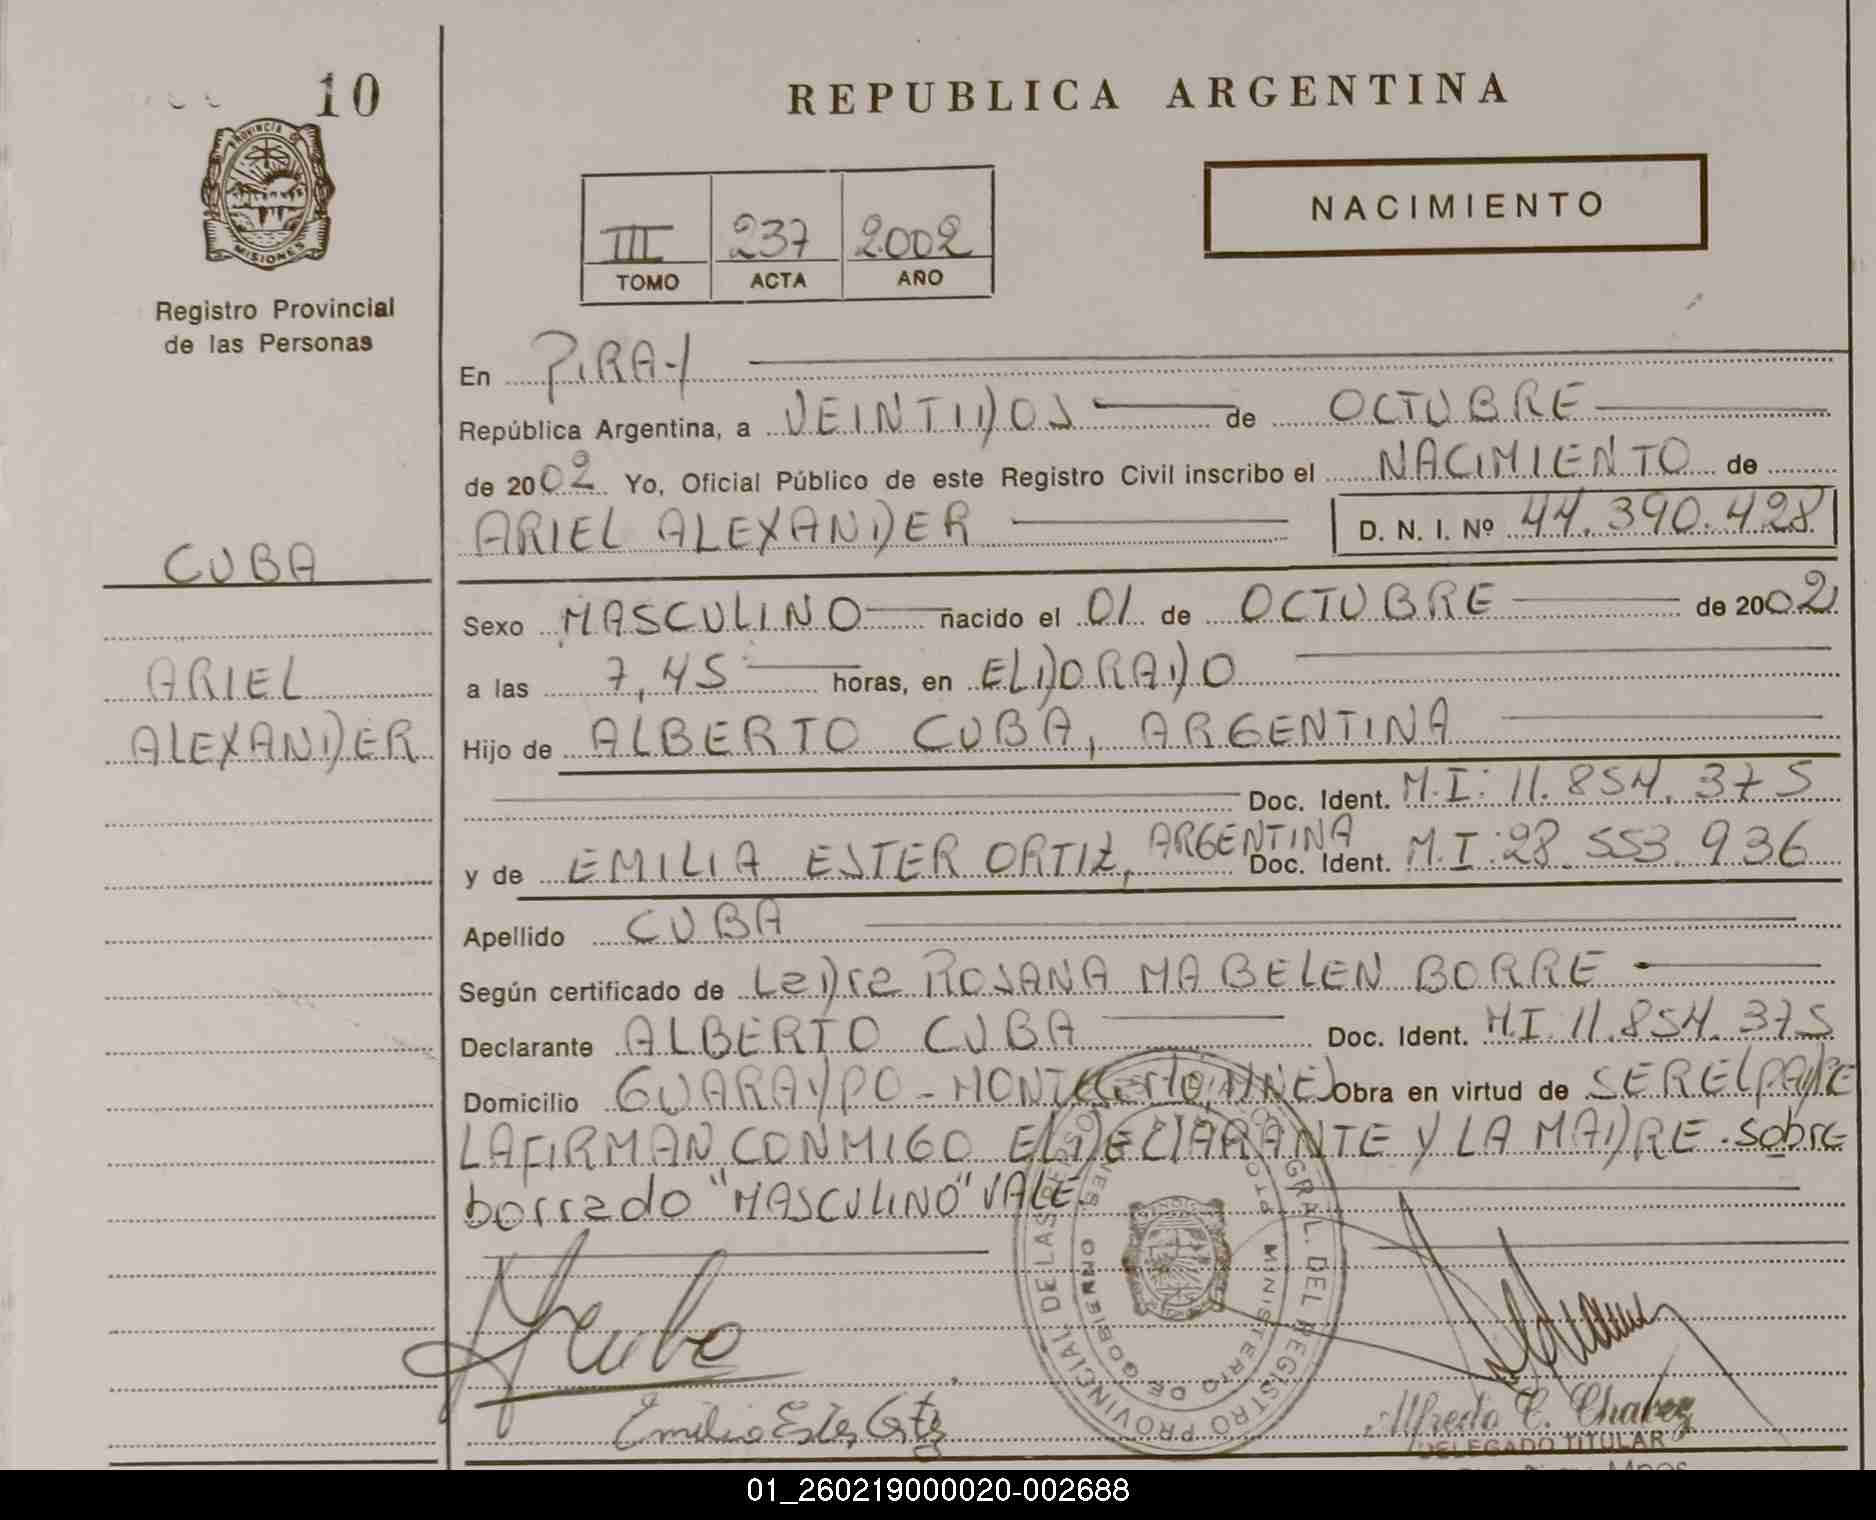 10
PROVINCIA DE
MISIONES
Registro Provincial
de las Personas
REPUBLICA ARGENTINA
NACIMIENTO
III 237 2002
TOMO ACTA AÑO
En PIRAY
República Argentina, a VEINTIDOS de OCTUBRE
de 2002 Yo, Oficial Público de este Registro Civil inscribo el NACIMIENTO de
ARIEL ALEXANDER D. N. I. Nº 44.390.428
CUBA
ARIEL
ALEXANDER
Sexo MASCULINO nacido el 01 de OCTUBRE de 2002
a las 7,45 horas, en ELDORADO
Hijo de ALBERTO CUBA, ARGENTINA
Doc. Ident. M.I: 11.854.375
y de EMILIA ESTER ORTIZ, ARGENTINA Doc. Ident. M.I:28.553.936
Apellido CUBA
Según certificado de La Dra ROSANA MABELEN BORRE
Declarante ALBERTO CUBA Doc. Ident. M.I.11.854.375
Domicilio GUARAYPO - MONTECarlo, MNES Obra en virtud de SER EL PADRE
LA FIRMAN CONMIGO EL DECLARANTE Y LA MADRE. Sobre
borrado "MASCULINO" VALE.
GRAL. DEL REGISTRO PROVINCIAL DE LAS PERSONAS
MINISTERIO DE GOBIERNO
Emilia Ester Ortiz
Alfredo C. Chavez
DELEGADO TITULAR
01_260219000020-002688